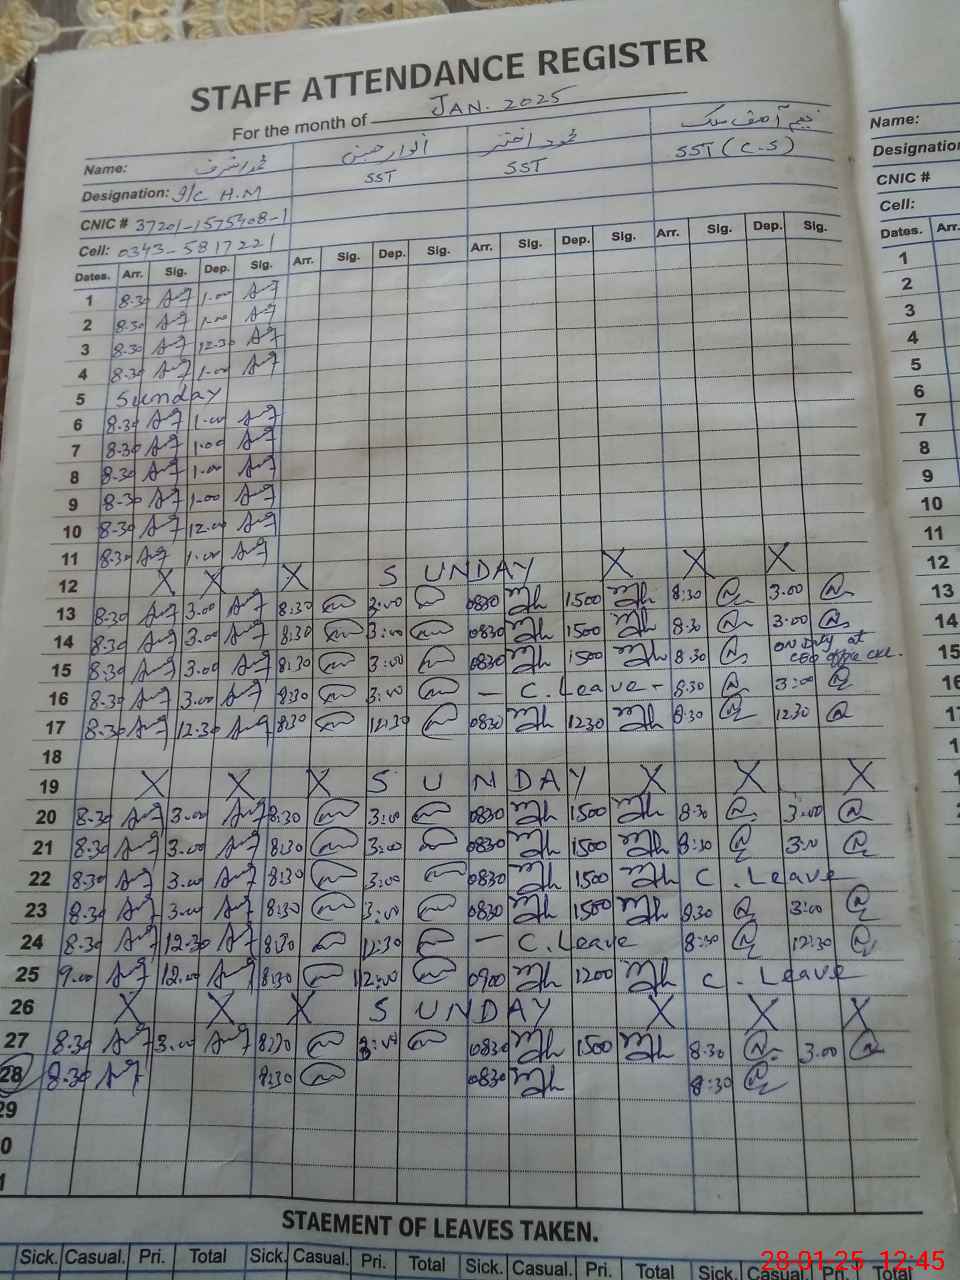 STAFF ATTENDANCE REGISTER
For the month of JAN. 2025
Name: محمد اشرف انوار حسین محمود اختر نعیم آصف ملک Name:
Designation: I/c H.M SST SST SST (C.S) Designation
CNIC # 37201-1575408-1 CNIC #
Cell: 0343-5817221 Cell:
Dates. Arr. Sig. Dep. Sig. Arr. Sig. Dep. Sig. Arr. Sig. Dep. Sig. Arr. Sig. Dep. Sig. Dates. Arr.
1 8.30 1.00 1
2 8.30 1.00 2
3 8.30 12.30 3
4 8.30 1.00 4
5 Sunday 5
6 8.30 1.00 6
7 8.30 1.00 7
8 8.30 1.00 8
9 8.30 1.00 9
10 8.30 12.00 10
11 8.30 1.00 11
12 X X X SUNDAY X X X 12
13 8.30 3.00 8:30 3:00 0830 1500 8:30 3.00 13
14 8.30 3.00 8:30 3:00 0830 1500 8:30 3:00 14
15 8.30 3.00 8:30 3:00 0830 1500 8.30 on Duty at CEO office ckl. 15
16 8.30 3.00 8:30 3:00 - C. Leave - 8:30 3:00 16
17 8.30 12.30 8:30 12:30 0830 1230 8:30 12:30 17
18
19 X X X SUNDAY X X X
20 8.30 3.00 8:30 3:00 0830 1500 8:30 3:00
21 8.30 3.00 8:30 3:00 0830 1500 8:30 3:00
22 8.30 3.00 8:30 3:00 0830 1500 C. Leave
23 8.30 3.00 8:30 3:00 0830 1500 8:30 3:00
24 8.30 12.30 8:30 12:30 - C. Leave 8:30 12:30
25 9.00 12.00 8:30 12:00 0900 1200 C. Leave
26 X X X SUNDAY X X X
27 8.30 3.00 8:30 3:00 0830 1500 8:30 3.00
28 8.30 8:30 0830 8:30
29
0
1
STAEMENT OF LEAVES TAKEN.
Sick. Casual. Pri. Total Sick. Casual. Pri. Total Sick. Casual. Pri. Total Sick. Casual. Pri. Total
28.01.25 12:45